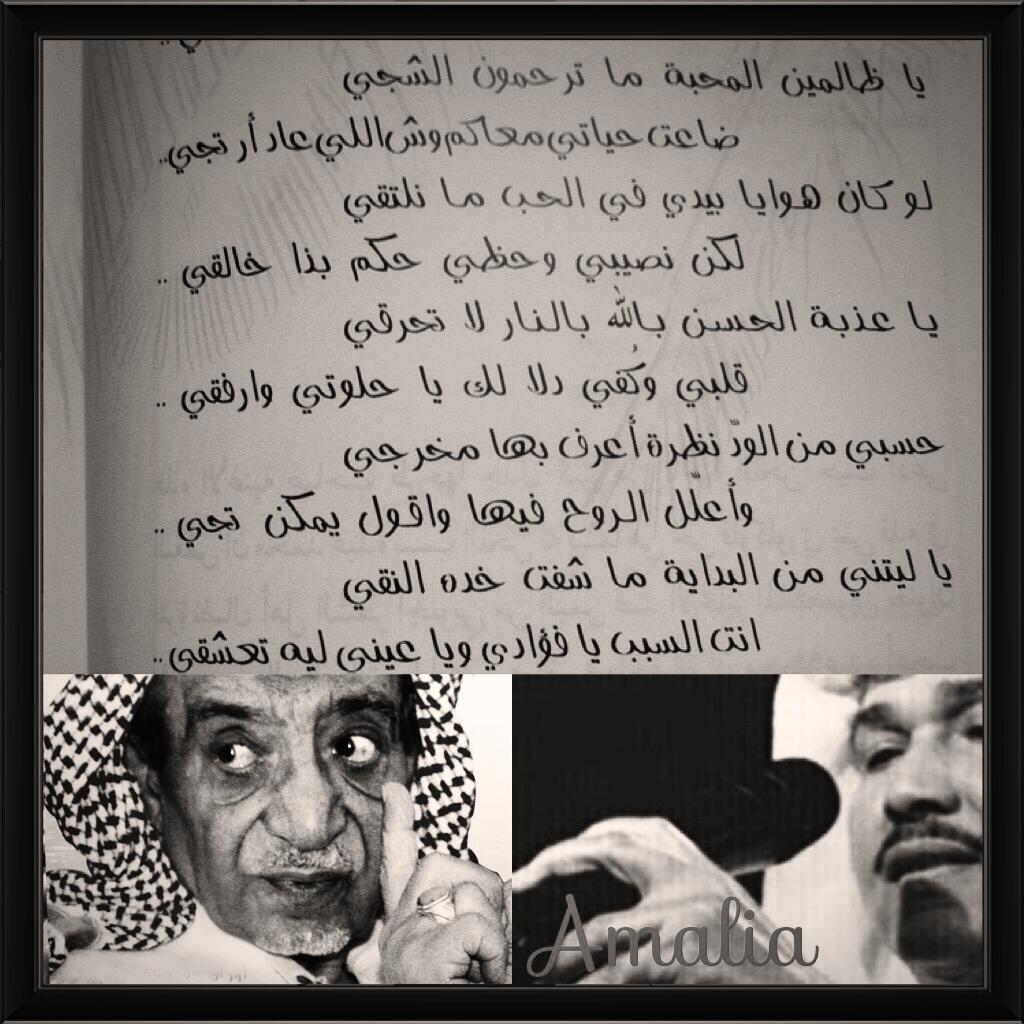 يا ظالمين المحبة ما ترحمون الشجي
ضاعت حياتي معاكم وش اللي عاد أرتجي..
لو كان هوايا بيدي في الحب ما نلتقي
لكن نصيبي وحظي حكم بذا خالقي ..
يا عذبة الحسن بالله بالنار لا تحرقي
قلبي وكُفي دلا لك يا حلوتي وارفقي ..
حسبي من الودّ نظرة أعرف بها مخرجي
وأعلّل الروح فيها واقول يمكن تجي ..
يا ليتني من البداية ما شفت خده النقي
انت السبب يا فؤادي ويا عيني ليه تعشقي..
Amalia